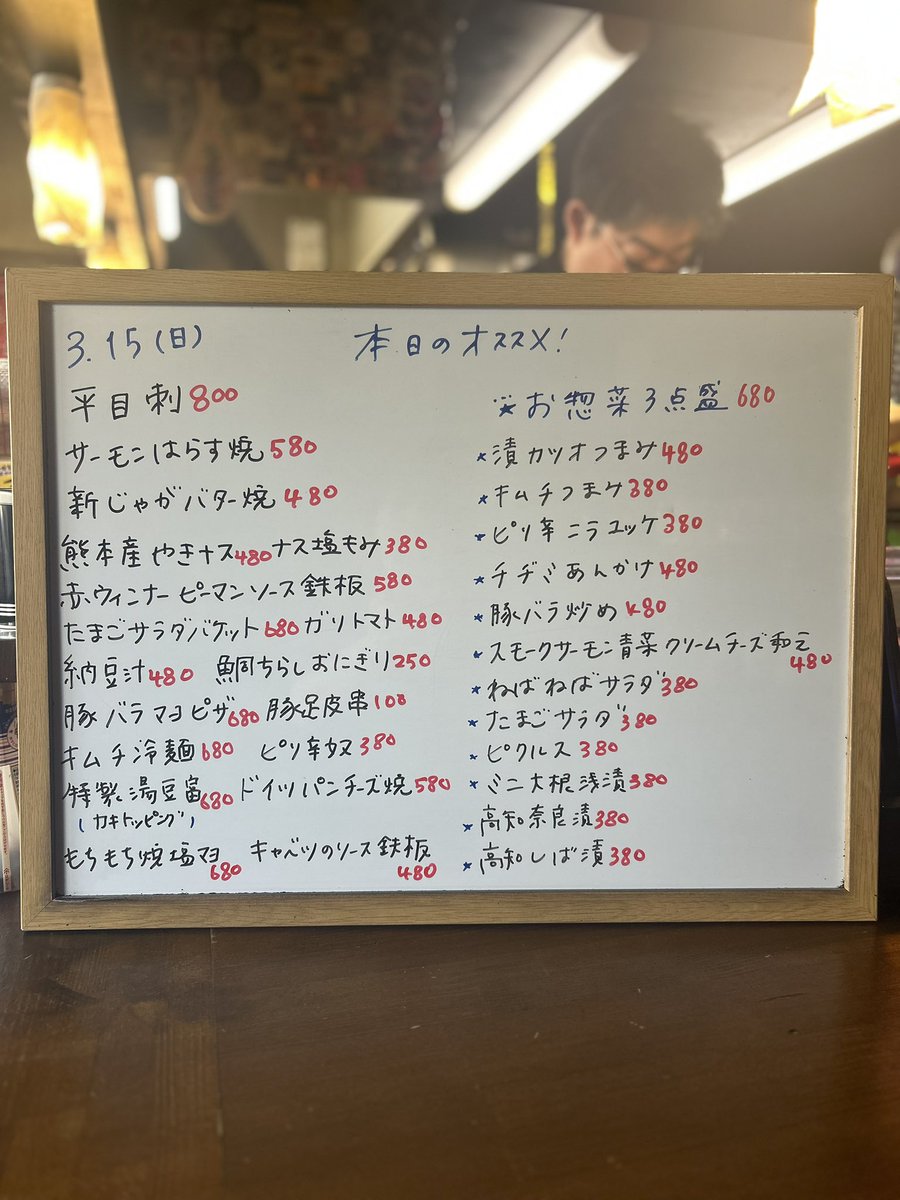 3.15(日) 本日のオススメ!
平目刺 800
サーモンはらす焼 580
新じゃがバター焼 480
熊本産 やきナス 480 ナス塩もみ 380
赤ウィンナーピーマンソース鉄板 580
たまごサラダバケット 680 ガリトマト 480
納豆汁 480 鯛ちらしおにぎり 250
豚バラマヨピザ 680 豚足皮串 100
キムチ冷麺 680 ピリ辛奴 380
特製湯豆富 680 ドイツパンチーズ焼 580
(カキトッピング)
もちもち焼塩マヨ 680 キャベツのソース鉄板 480
★お惣菜3点盛 680
★漬カツオつまみ 480
★キムチつまみ 380
★ピリ辛ニラユッケ 380
★チヂミあんかけ 480
★豚バラ炒め 480
★スモークサーモン青菜クリームチーズ和え 480
★ねばねばサラダ 380
★たまごサラダ 380
★ピクルス 380
★ミニ大根浅漬 380
★高知奈良漬 380
★高知しば漬 380